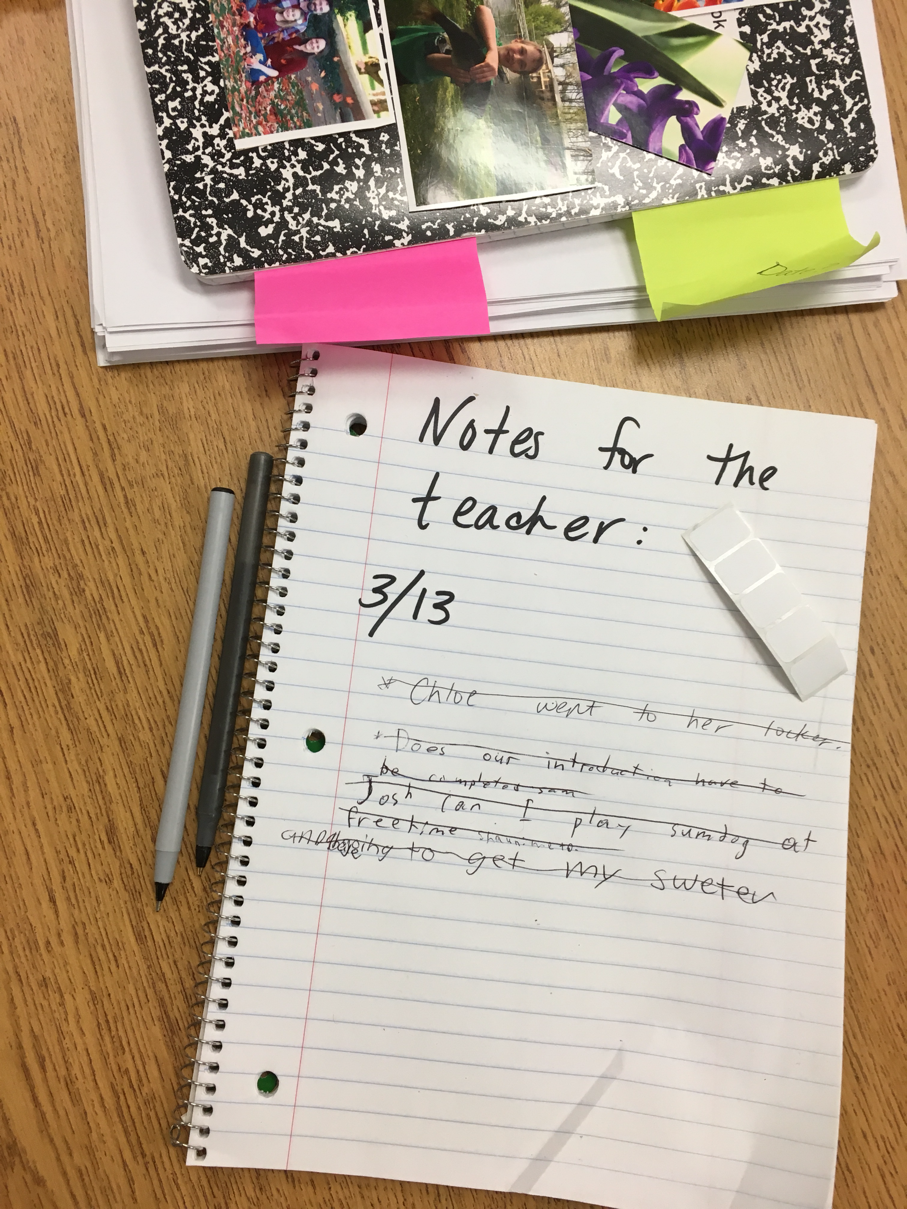 ok
Notes for the
teacher:
3/13
* Chloe went to her locker.
* Does our introduction have to
be completed sam
Josh Can I play sumdog at
freetime
going to get my sweter